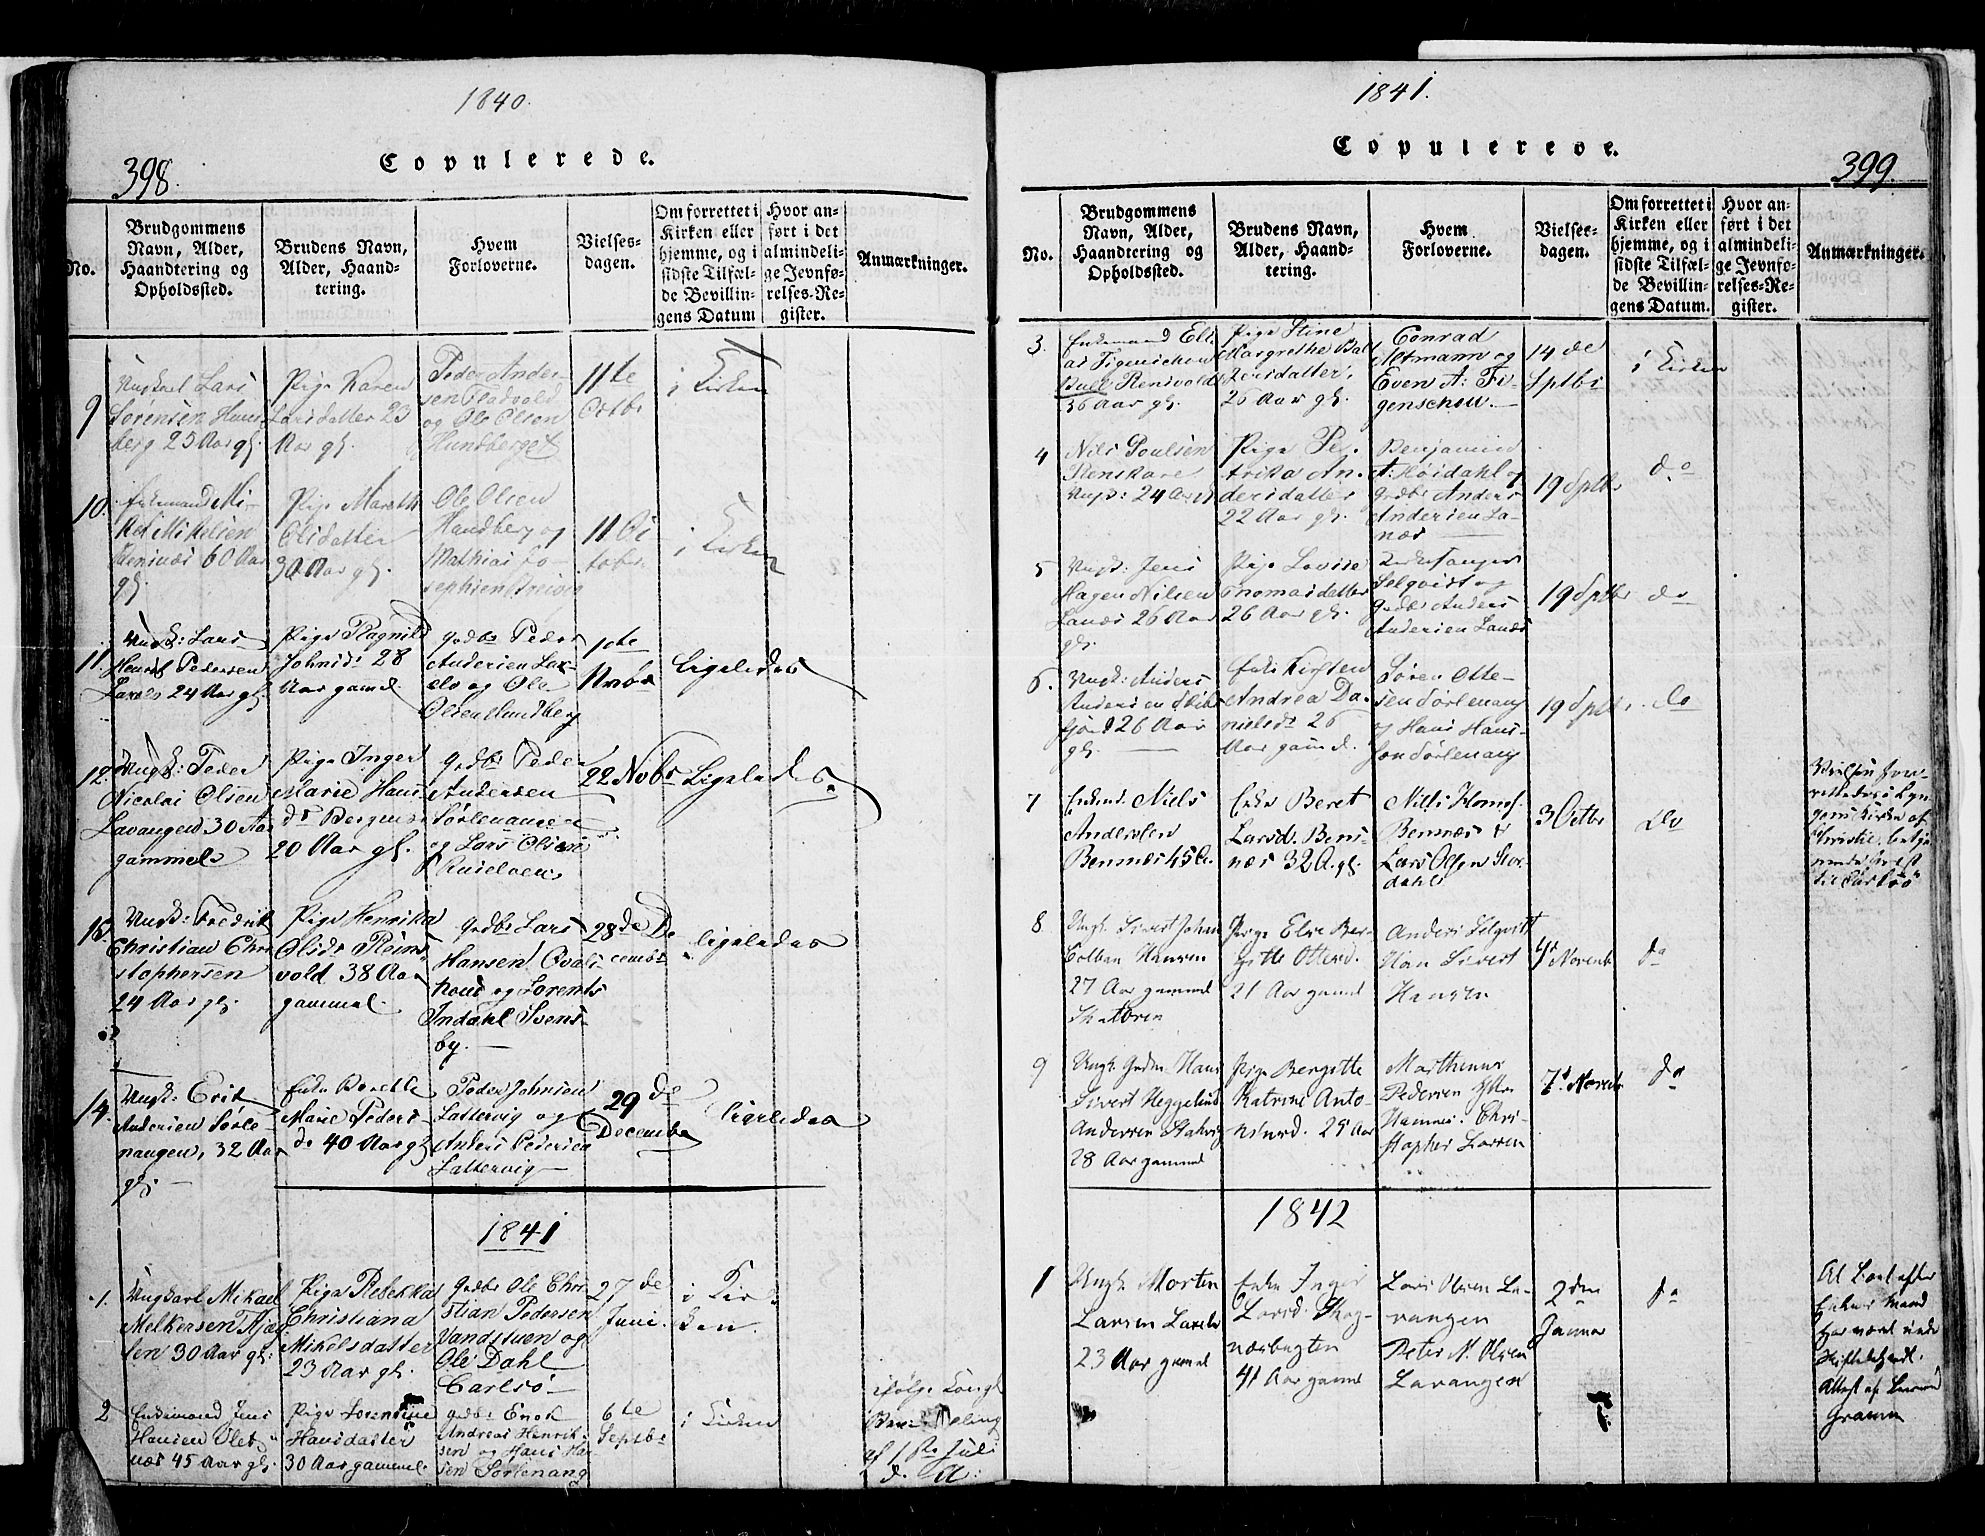 1840.
398.
Copulerede.
No.
Brudgommens
Navn, Alder,
Haandtering og
Opholdssted.
Brudens Navn,
Alder, Haand-
tering.
Hvem
Forloverne.
Vielses-
dagen.
Om forrettet i
Kirken eller
hjemme, og i
sidste Tilfæl-
de Bevillin-
gens Datum
Hvor an-
ført i det
almindeli-
ge Jevnfø-
relses-Re-
gister.
Anmærkninger.
9
Ungkarl Lars
Sørensen Hund-
berg 25 Aar gl.
Pige Karen
Larsdatter 23
Aar gl.
Peder Ander-
sen
og Ole Olsen
Hundberget
11te
Octbr
i Kirken
10.
Enkemand Mi-
kel Mikelsen
60 Aar
gl.
Pige Mareth
Olsdatter
30 Aar gl.
Ole Olsen
Hundberg og
Mathias Jo-
sephsen
11 Oc
tober
i Kirken
11.
Ungk: Lars
Henrik Pedersen
24 Aar gl.
Pige Ragnild
Johnsdr 28
Aar gammel.
Gaardbr Peder
Andersen Lax-
elv og Ole
Olsen Hundberg
1ste
Novbr
Ligeledes
12.
Ungk: Peder
Nicolai Olsen
Lavangen 30 Aar
gammel
Pige Inger
Marie Hans
dr
20 Aar gl.
Gaardbr Peder
Andersen
Sørlenangen
og Lars Olsen
22 Nobr
Ligeledes
13.
Ungk: Fredrik
Christian Chri-
stophersen
24 Aar gl.
Pige Henrikka
Olsdr Reins-
vold 38 Aar
gammel.
Gaardbr Lars
Hansen
og Lorents
Indahl Svens-
by.
28de De
cembr
ligeledes
14.
Ungk: Erik
Andersen Sørle-
nangen, 32 Aar
gl.
Enke Berethe
Marie Peders
dr 40 Aar gl.
Peder Johnsen
Lattervig og
Anders Pedersen
Lattervig
29de
December
ligeledes
1841
1.
Ungkarl Mikael
Melkersen
30 Aar gl:
Pige Rebekka
Christiana
Mikelsdatter
23 Aar gl.
Gaardbr Ole Chri-
stian Pedersen
Vandstuen og
Ole Dahl
Carlsø
27de
Juni.
i Kir-
ken.
2
Enkemand Jens
Hansen
45 Aar gl.
Pige Lorentine
Hansdatter
30 Aar gammel.
Gaardbr Enok
Andreas Henrik-
sen og Hans Han-
sen Sørlenang
6te
Septbr
i Kirken
ifølge Kongl
af 1ste Juli
d. A:
1841.
Copulerede.
399.
No.
Brudgommens
Navn, Alder,
Haandtering og
Opholdssted.
Brudens Navn,
Alder, Haand-
tering.
Hvem
Forloverne.
Vielses-
dagen.
Om forrettet i
Kirken eller
hjemme, og i
sidste Tilfæl-
de Bevillin-
gens Datum.
Hvor an-
ført i det
almindeli-
ge Jevnfø-
relses-Re-
gister.
Anmærkninger.
3.
Enkemand Eli-
as Figenschou
Bull Rensvold
36 Aar gl.
Pige Stine
Margrethe Bal-
zersdatter,
26 Aar gl.
Conrad
Altmann og
Even A: Fi-
genschou.
14de
Sptbr
i Kirken
4
Nils Poulsen
Ungk: 24 Aar gl
Pige Pe-
trika An-
dersdatter
22 Aar gl.
Benjamin
A: Høidahl og
Gaardbr Anders
Andersen La-
næs
19 Sptbr
do
5
Ungk: Jens
Hagen Nilsen
Lanæs 26 Aar
gl.
Pige Lovise
Thomasdatter
26 Aar gl.
Kirkesanger
Selqvist og
Gaardbr Anders
Andersen Lanæs
19 Sptbr
do
6.
Ungk: Anders
Andersen
26 Aar
gl.
Enke Kirsten
Andrea Da-
nielsdr 26
Aar gammel.
Søren Otte-
sen Sørlenang
og Hans Han-
sen Sørlenang
19 Sptbr.
do
7
Enkemd. Niels
Andersen
Bensnæs 45 A.
Enke Beret
Larsd. Bens-
næs 32 A. gl.
Nills
Bensnæs &
Lars Olsen Stor-
dahl
3 Octbr
do
Vielsen for-
rettedes i Lyn-
gens Kirke af
Christie,
8
Ungk. Sivert Johan
Colban Hansen
27 Aar gammel
Pige Else Ber-
gitte Ottersd.
21 Aar gammel
Anders Selqvist
Hans Sivert
Hansen
Novemb
do
9
Ungk. Hans
Sivert Heggelund
Andersen
28 Aar gammel
Pige Bergitte
Katrine Anto-
niusd. 25 Aar
Marthinus
Pedersen
Chri-
stopher Larsen
7d Novemb
do
1842
1
Ungk. Morten
Larsen
23 Aar gammel
Enke Inger
Larsd.
41 Aar gammel
Lars Olsen La-
vangen
Peter N. Olsen
Lavangen
2den
Januar
do
At Boet efter
Enkens Mand
har været under
Attest af